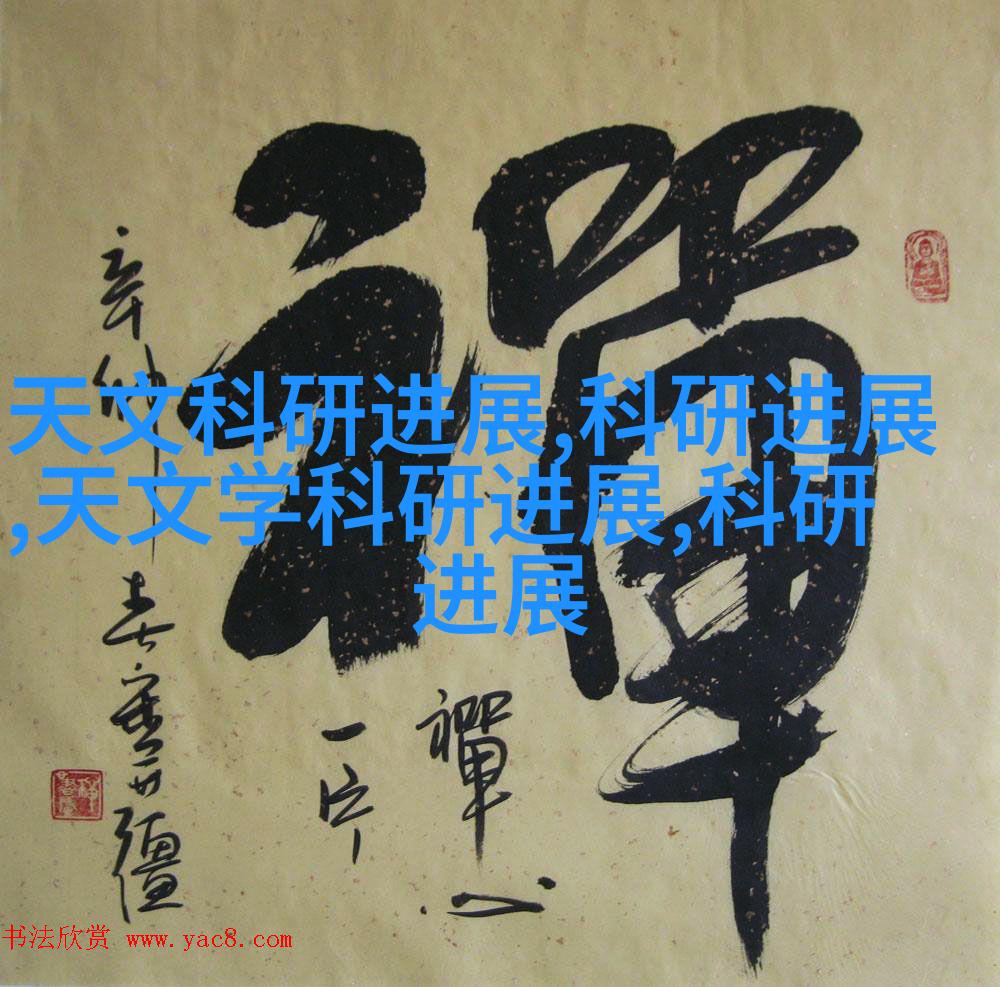 禪
禪心
一片
天文科研进展,科研进展
,天文学科研进展,科研
进展
书法欣赏 www.yac8.com